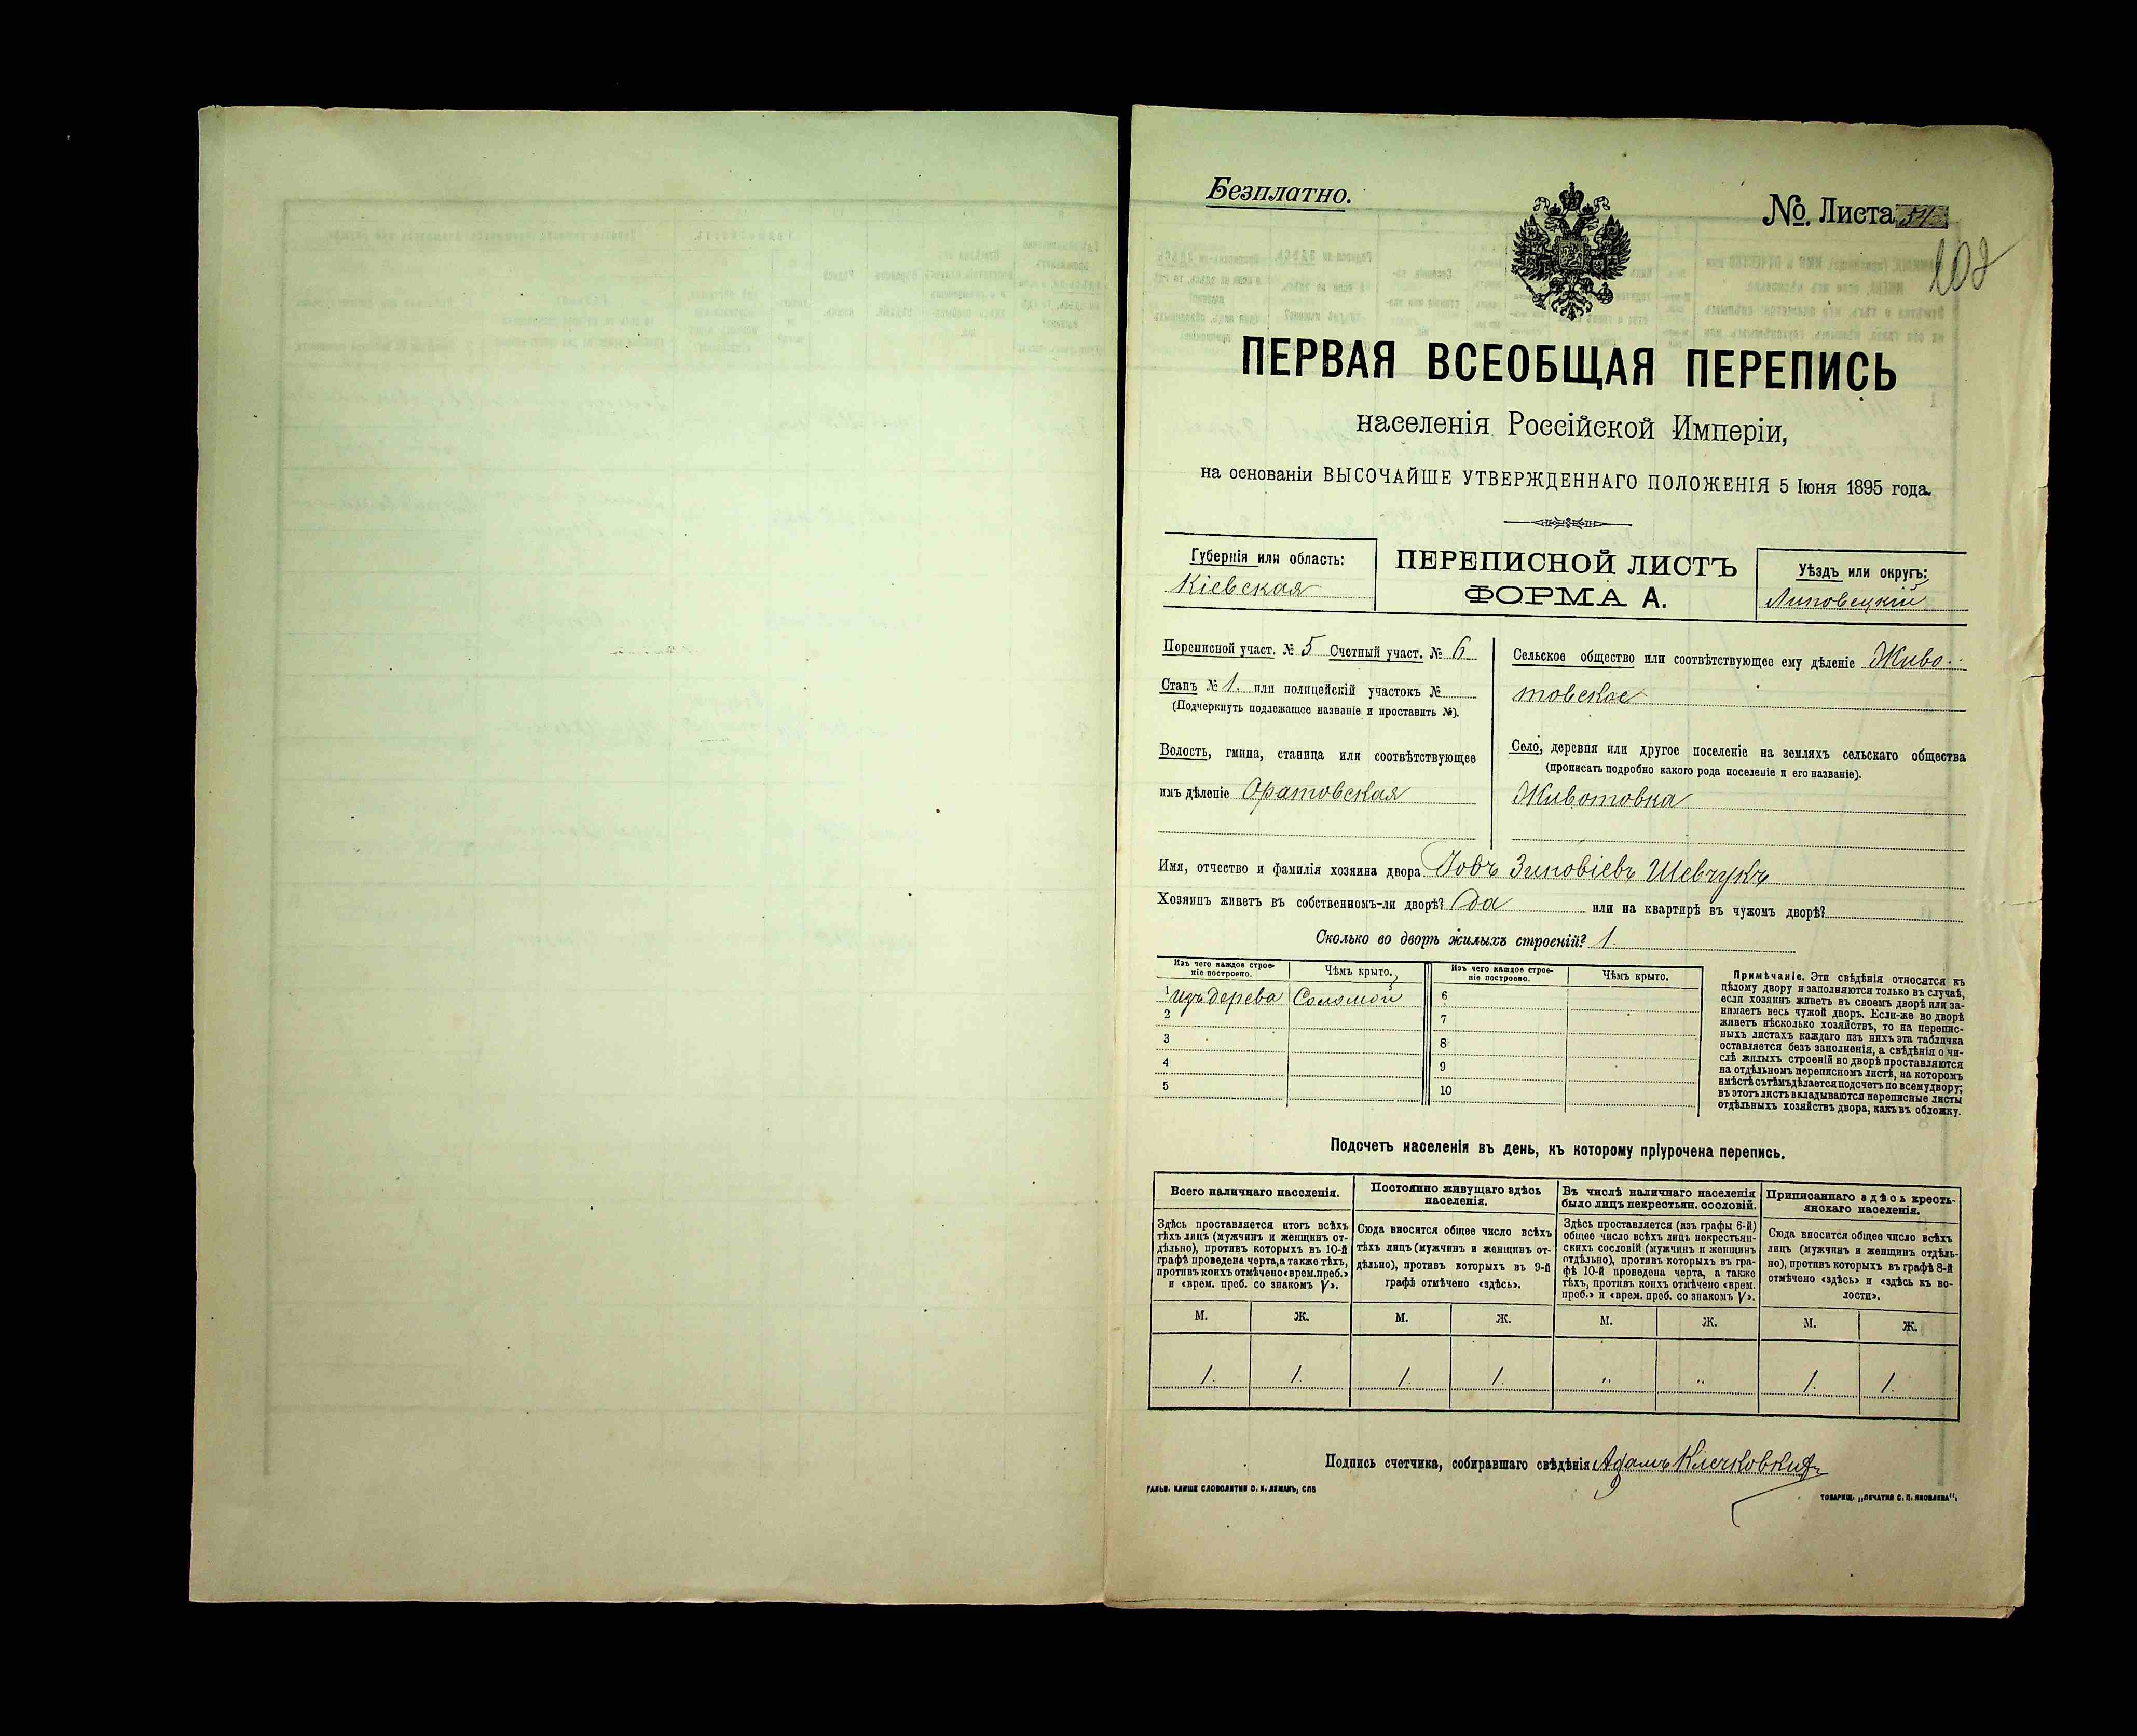 Безплатно.
№. Листа 54
102
ПЕРВАЯ ВСЕОБЩАЯ ПЕРЕПИСЬ
населенія Россійской Имперіи,
на основаніи ВЫСОЧАЙШЕ УТВЕРЖДЕННАГО ПОЛОЖЕНІЯ 5 Іюня 1895 года.
Губернія или область:
Кіевская
ПЕРЕПИСНОЙ ЛИСТЪ
ФОРМА А.
Уѣздъ или округъ:
Липовецкій
Переписной участ. № 5 Счетный участ. № 6
Станъ № 1. или полицейскій участокъ №
(Подчеркнуть подлежащее названіе и проставить №).
Волость, гмина, станица или соотвѣтствующее
имъ дѣленіе Оратовская
Сельское общество или соотвѣтствующее ему дѣленіе Живо-
товское
Село, деревня или другое поселеніе на земляхъ сельскаго общества
(прописать подробно какого рода поселеніе и его названіе).
Животовка
Имя, отчество и фамилія хозяина двора Іовъ Зиновіевъ Шевчукъ
Хозяинъ живетъ въ собственномъ-ли дворѣ? Да или на квартирѣ въ чужомъ дворѣ?
Сколько во дворѣ жилыхъ строеній? 1.
Изъ чего каждое строе-
ніе построено.
Чѣмъ крыто.
Изъ чего каждое строе-
ніе построено.
Чѣмъ крыто.
1 Изъ дерева Соломой 6
2 7
3 8
4 9
5 10
Примѣчаніе. Эти свѣдѣнія относятся къ
цѣлому двору и заполняются только въ случаѣ,
если хозяинъ живетъ въ своемъ дворѣ или за-
нимаетъ весь чужой дворъ. Если-же во дворѣ
живетъ нѣсколько хозяйствъ, то на перепис-
ныхъ листахъ каждаго изъ нихъ эта табличка
оставляется безъ заполненія, а свѣдѣнія о чи-
слѣ жилыхъ строеній во дворѣ проставляются
на отдѣльномъ переписномъ листѣ, на которомъ
вмѣстѣ съ тѣмъ дѣлается подсчетъ по всему двору;
въ этотъ листъ вкладываются переписные листы
отдѣльныхъ хозяйствъ двора, какъ въ обложку.
Подсчетъ населенія въ день, къ которому пріурочена перепись.
Всего наличнаго населенія.
Здѣсь проставляется итогъ всѣхъ
тѣхъ лицъ (мужчинъ и женщинъ от-
дѣльно), противъ которыхъ въ 10-й
графѣ проведена черта, а также тѣхъ,
противъ коихъ отмѣчено «врем. преб.»
и «врем. преб. со знакомъ V».
Постоянно живущаго здѣсь
населенія.
Сюда вносится общее число всѣхъ
тѣхъ лицъ (мужчинъ и женщинъ от-
дѣльно), противъ которыхъ въ 9-й
графѣ отмѣчено «здѣсь».
Въ числѣ наличнаго населенія
было лицъ некрестьян. сословій.
Здѣсь проставляется (изъ графы 6-й)
общее число всѣхъ лицъ некрестьян-
скихъ сословій (мужчинъ и женщинъ
отдѣльно), противъ которыхъ въ гра-
фѣ 10-й проведена черта, а также
тѣхъ, противъ коихъ отмѣчено «врем.
преб.» и «врем. преб. со знакомъ V».
Приписаннаго здѣсь кресть-
янскаго населенія.
Сюда вносится общее число всѣхъ
лицъ (мужчинъ и женщинъ отдѣль-
но), противъ которыхъ въ графѣ 8-й
отмѣчено «здѣсь» и «здѣсь къ во-
лости».
М. Ж. М. Ж. М. Ж. М. Ж.
1. 1. 1. 1. " " 1. 1.
Подпись счетчика, собиравшаго свѣдѣнія Адамъ
ГАЛЬВ. КЛИШЕ СЛОВОЛИТНИ О. И. ЛЕМАНЪ, СПБ
ТОВАРИЩ. „ПЕЧАТНЯ С. П. ЯКОВЛЕВА".